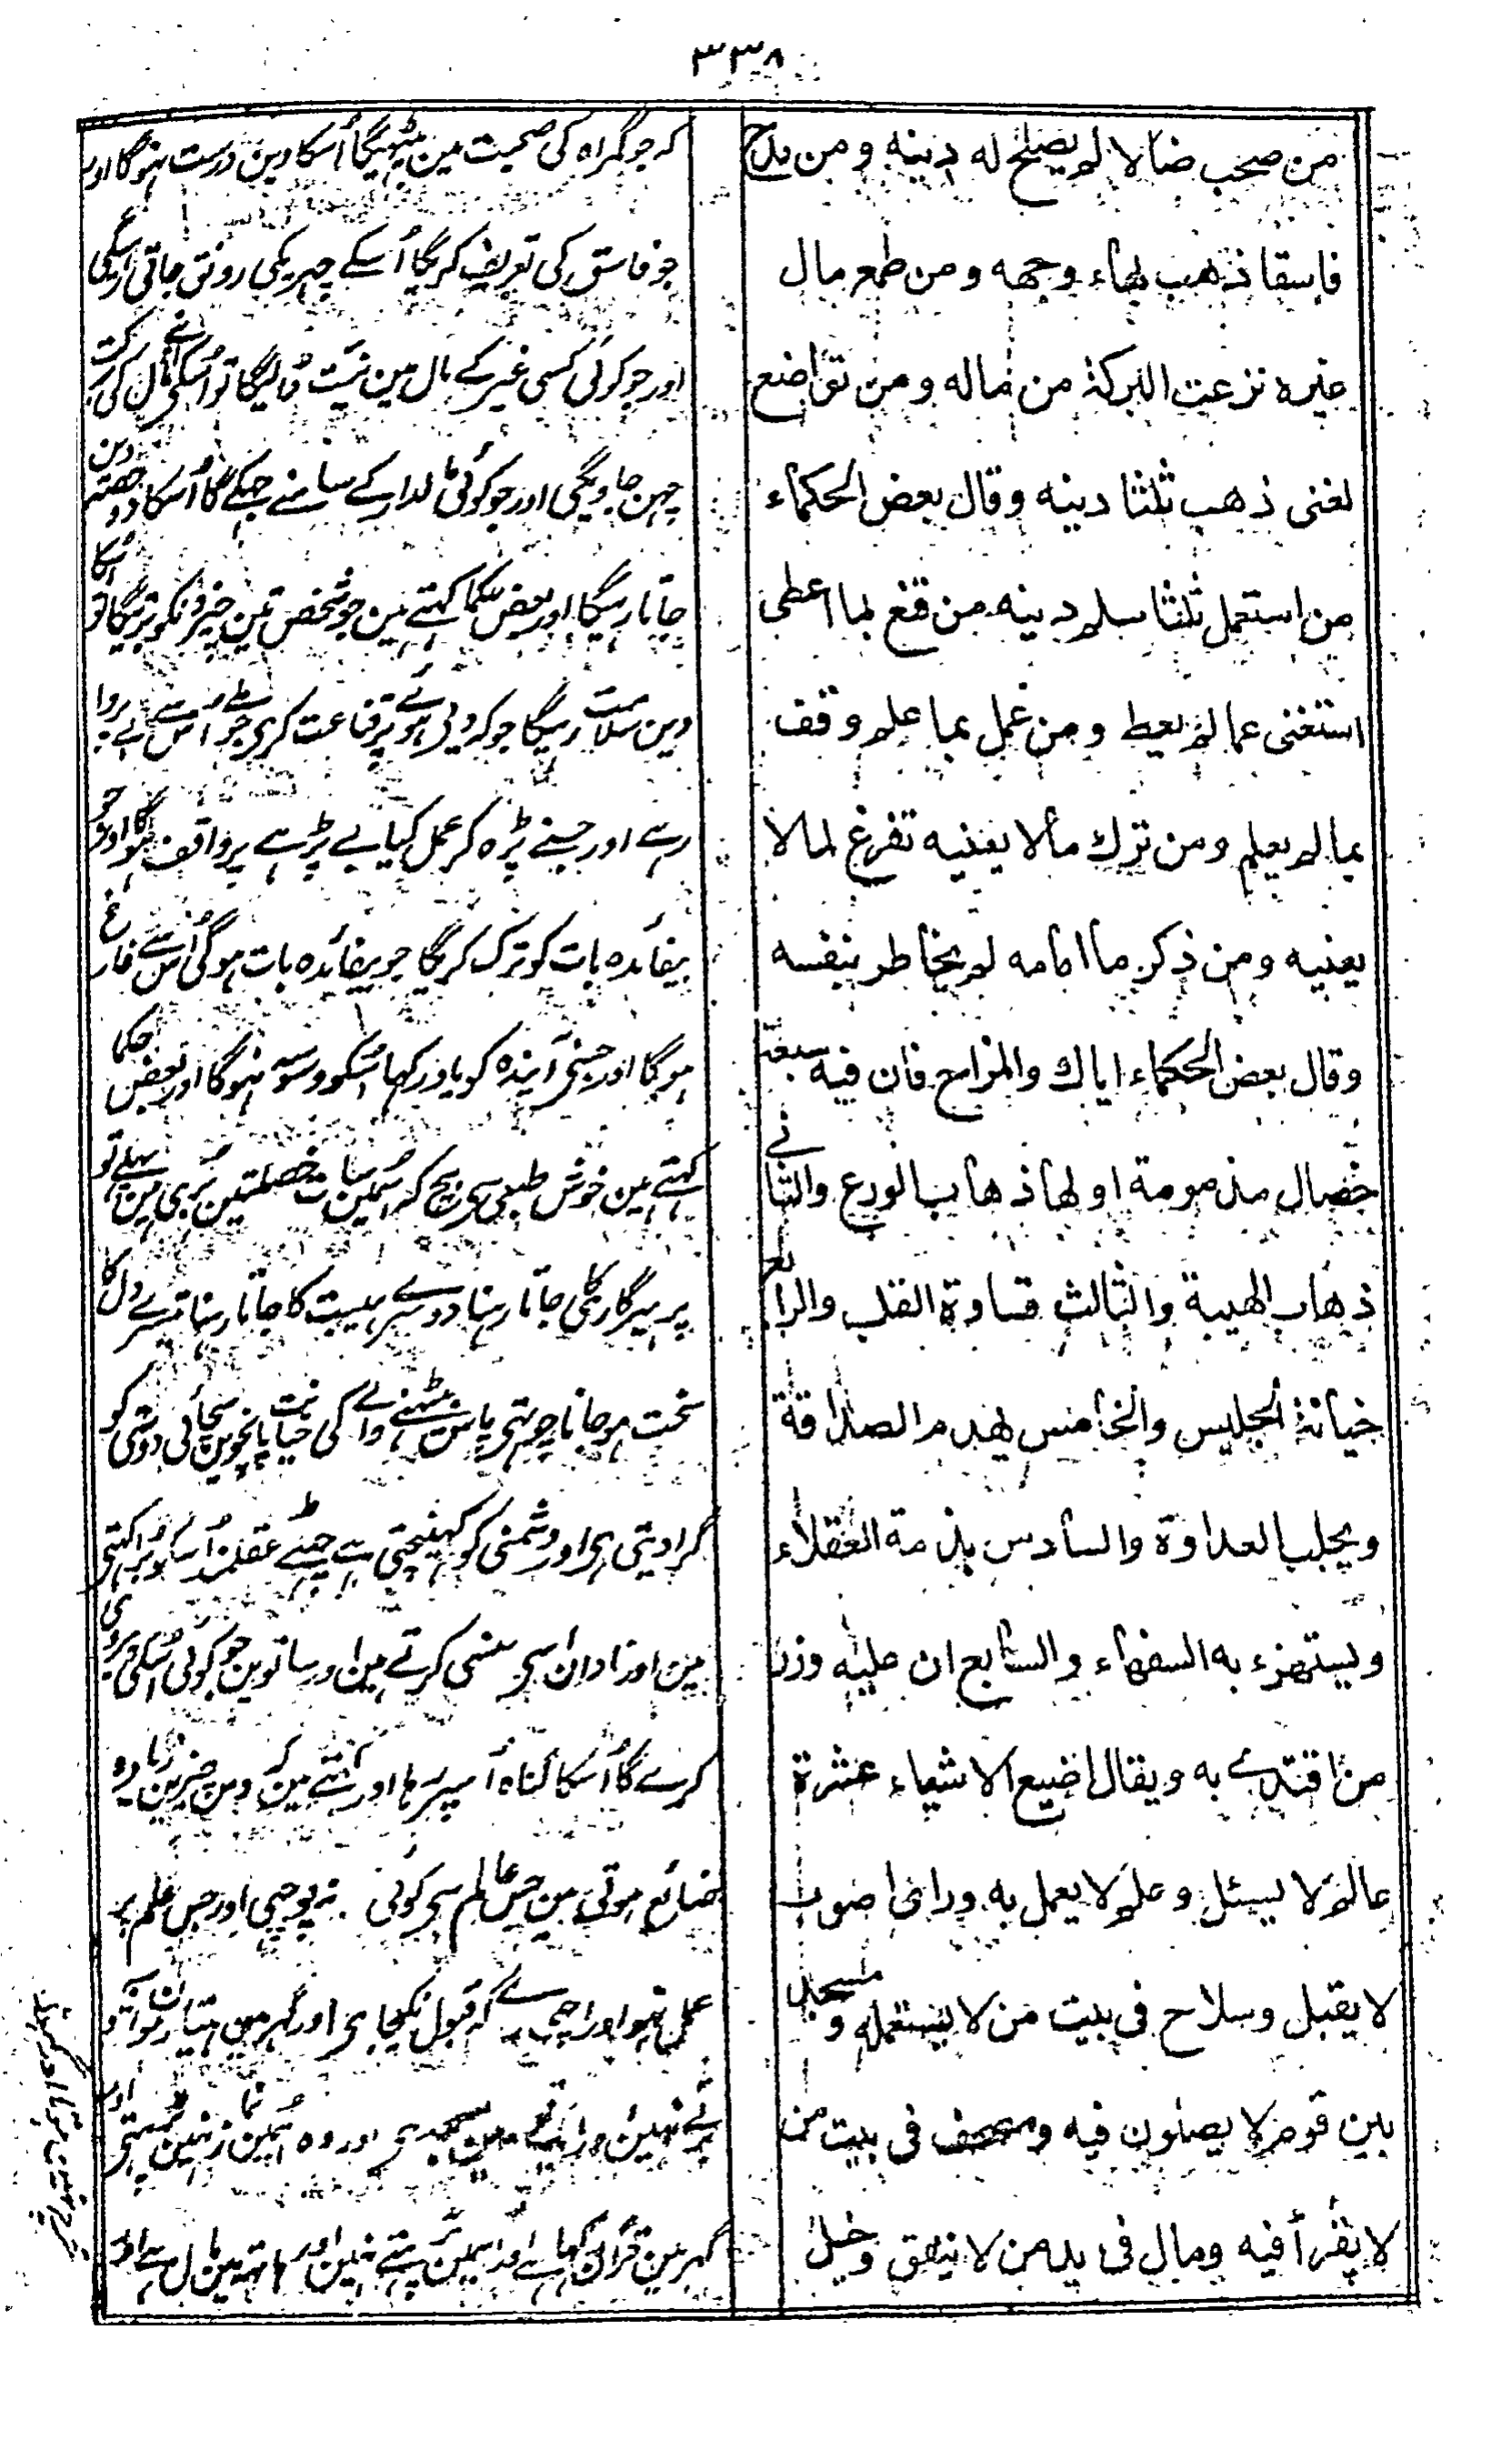 ٣٣٨
من صحب ضالا لم يصلح له دينه ومن مدح
فاسقا ذهب بهاء وجهه ومن طمع مال
غيره نزعت البركة من ماله ومن تواضع
لغنى ذهب ثلثا دينه وقال بعض الحكماء
من استعمل ثلثا سلم دينه من قنع بما اعطى
استغنى عما لم يعط ومن عمل بما علم وقف
بما لم يعلم ومن ترك مالا يعنيه تفرغ لمالا
يعنيه ومن ذكر ما امامه لم يخاطر بنفسه
وقال بعض الحكماء اياك والمزاح فان فيه سبعة
خصال مذمومة اولها ذهاب الورع والثانى
ذهاب الهيبة والثالث قساوة القلب والرابع
خيانة الجليس والخامس يهدم الصداقة
ويجلب العداوة والسادس يذمه العقلاء
ويستهزء به السفهاء والسابع ان عليه وزر
من اقتدى به ويقال اضيع الاشياء عشرة
عالم لا يسئل وعلم لا يعمل به وراى صوب
لا يقبل وسلاح فى بيت من لا يستعمله ومسجد
بين قوم لا يصلون فيه ومصحف فى بيت من
لا يقرأ فيه ومال فى يد من لا ينفق وخيل
كہ جو گمراہ کی صحبت مین بیٹہیگا اُسکا دین درست نہوگا اور
جو فاسق کی تعریف کریگا اُسکے چہریکی رونق جاتی رہیگی
اور جو کوئی کسی غیر کے مال مین نیت ڈالیگا تو اُسکے مال کی برکت
چہن جاویگی اور جو کوئی مالدار کے سامنے جہکے گا اُسکا دو حصہ دین
جاتا رہیگا اور بعض حکما کہتے ہین جو شخص تین چیزونکو برتیگا تو اُسکا
دین سلامت رہیگا جو کہ دی ہوئے پر قناعت کری جو نہ ملے اُس سے بے پروا
رہے اور جسنے پڑہ کر عمل کیا بے پڑہے پر واقف ہوگا اور جو
بیفائدہ بات کو ترک کریگا جو بیفائدہ بات ہوگی اُس سے فارغ
ہوگا اور جسنی آیندہ کو یاد رکہا اُسکو وسوسہ نہوگا اور بعض حکما
کہتے ہین خوش طبعی سی بچ کہ اُسمین سات خصلتین بُری ہین پہلے تو
پرہیزگاری کا جاتا رہنا دوسرے ہیبت کا جاتا رہنا تیسرے دل کا
سخت ہو جانا چوتہی پاس بیٹہنے والے کی خیانت پانچوین سچائی دوستی کو
گرا دیتی ہی اور دشمنی کو کہینچتی ہے چہٹے عقلمند اُسکو بُرا کہتے
ہین اور نادان اُسپر ہنسی کرتے ہین اور ساتوین جو کوئی اُسکی پیروی
کرے گا اُسکا گناہ اُسپر رہا اور کہتے ہین کہ دس چیزین زیادہ
ضائع ہوتی ہین جس عالم سی کوئی نہ پوچہی اور جس علم پر
عمل نہو اور اچہی رائے کہ قبول نکیجاوی اور گہر مین ہتیار ہون تو
نہین اور ایسے مین مسجد ہی اور وہ اُسمین نماز نہین پڑہتے اور
گہر مین قرآن رکہا ہے اور اُسمین پڑہتے نہین اور ہاتہہ مین مال ہے اور